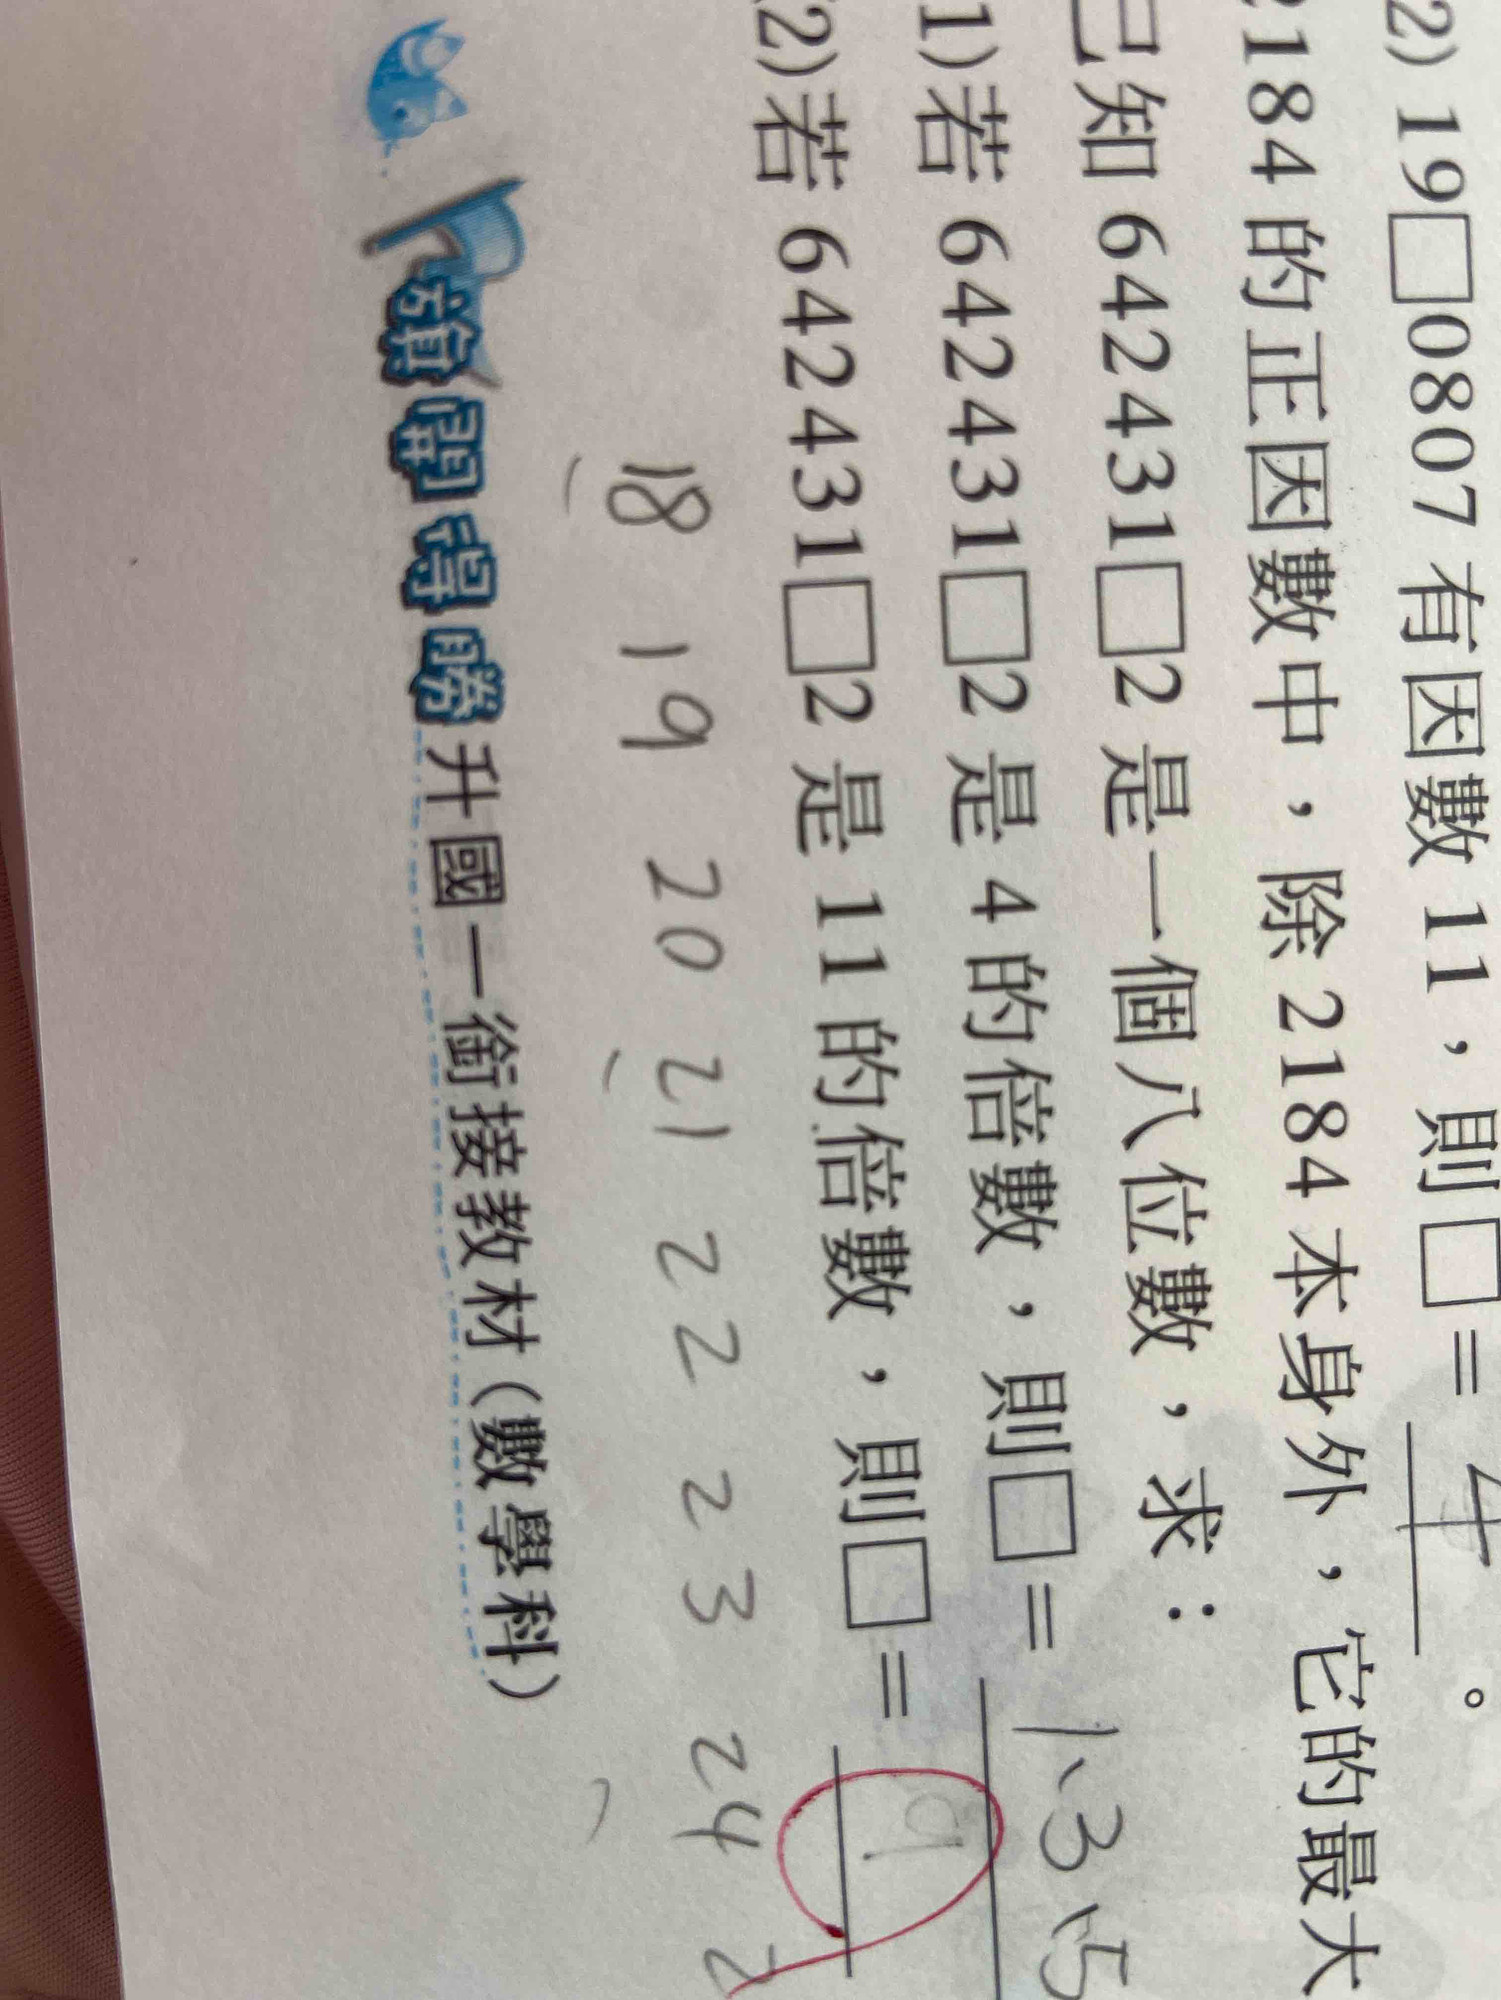 2) 19□0807 有因數 11，則□= 4 。
2184 的正因數中，除 2184 本身外，它的最大
已知 642431□2 是一個八位數，求：
1)若 642431□2 是 4 的倍數，則□= 1、3、5
(2)若 642431□2 是 11 的倍數，則□= 9
18 19 20 21 22 23 24 2
旗開得勝 升國一銜接教材(數學科)